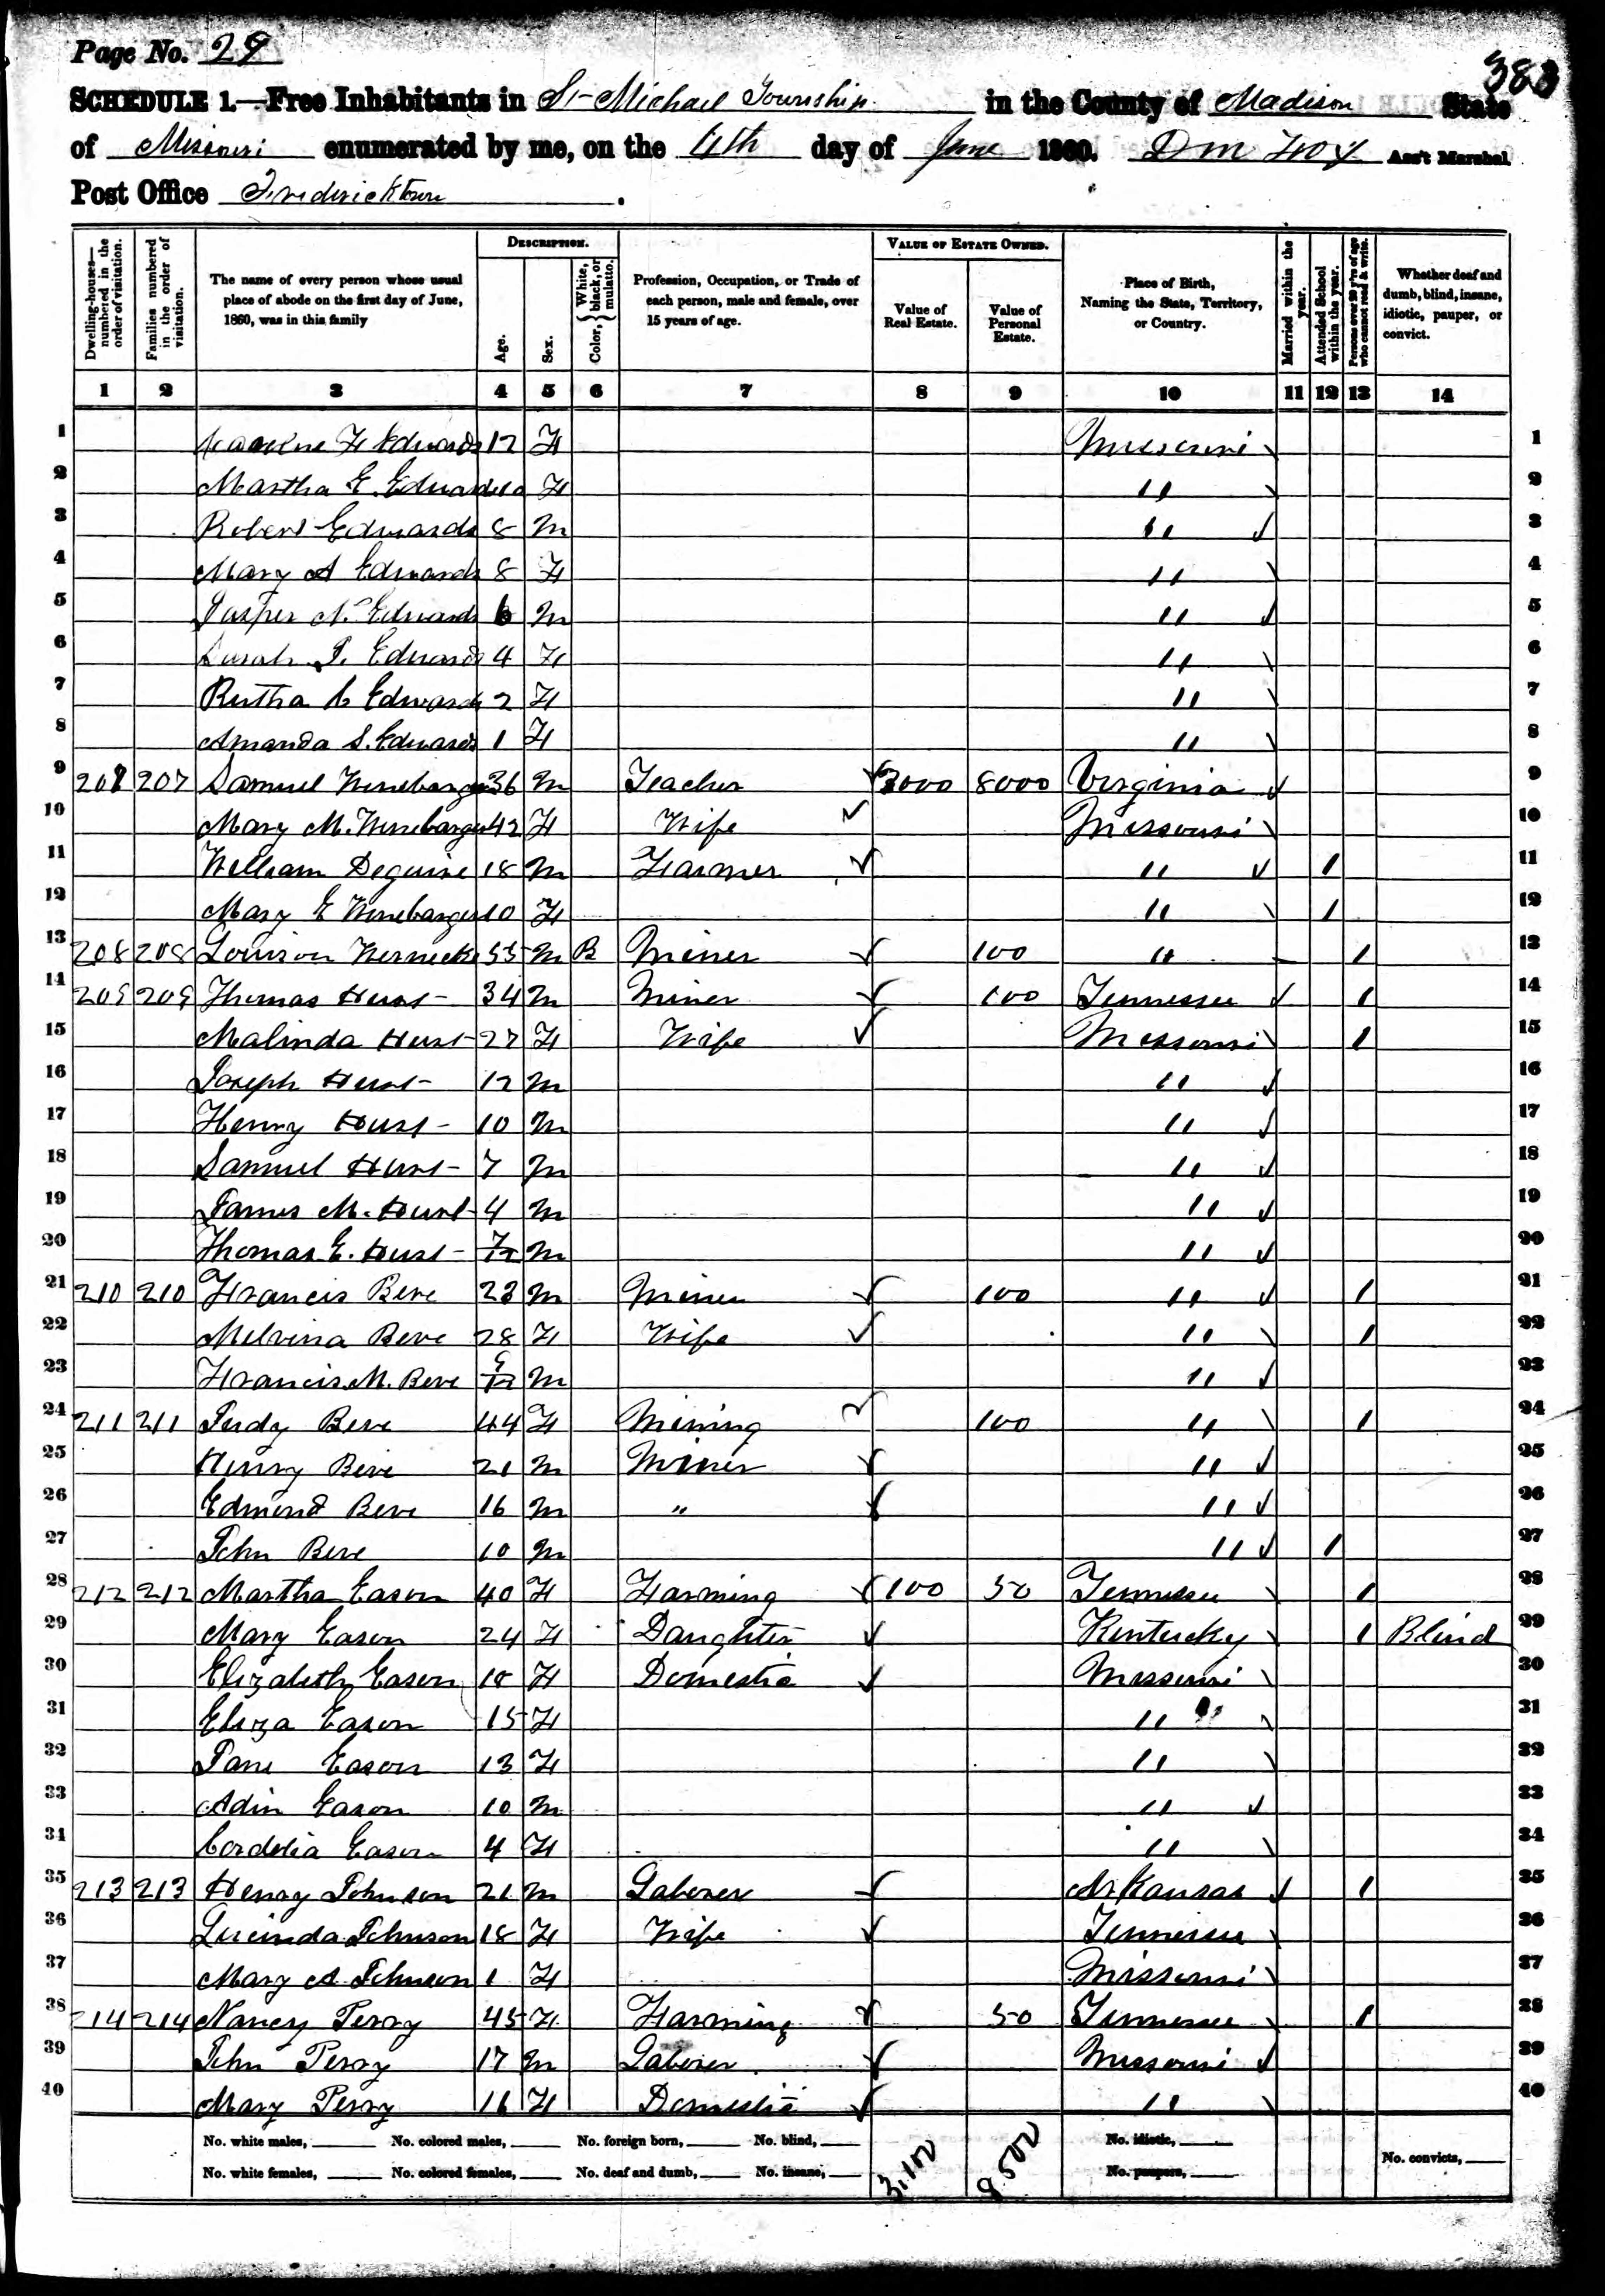 Page No. 29
383
SCHEDULE 1.—Free Inhabitants in St Michael Township in the County of Madison State
of Missouri enumerated by me, on the day of June 1860. Ass't Marshal.
Post Office Fredericktown.
Dwelling-houses—numbered in the order of visitation.
Families numbered in the order of visitation.
The name of every person whose usual place of abode on the first day of June, 1860, was in this family
DESCRIPTION.
Age.
Sex.
Color, { White, black, or mulatto.
Profession, Occupation, or Trade of each person, male and female, over 15 years of age.
VALUE OF ESTATE OWNED.
Value of Real Estate.
Value of Personal Estate.
Place of Birth, Naming the State, Territory, or Country.
Married within the year.
Attended School within the year.
Persons over 20 y'rs of age who cannot read & write.
Whether deaf and dumb, blind, insane, idiotic, pauper, or convict.
1 2 3 4 5 6 7 8 9 10 11 12 13 14
1 F Edwards 12 F Missouri 1
2 Martha E. Edwards 10 F " 2
3 Robert Edwards 8 m " 3
4 Mary A Edwards 8 F " 4
5 Jasper N. Edwards 6 m " 5
6 Sarah J. Edwards 4 F " 6
7 Rutha C Edwards 2 F " 7
8 Amanda S. Edwards 1 F " 8
9 207 207 Samuel Winebarger 36 m Teacher 3000 8000 Virginia 9
10 Mary M. Winebarger 42 F Wife Missouri 10
11 William Deguire 18 m Farmer " 1 11
12 Mary E Winebarger 10 F " 1 12
13 208 208 Louison 55 m B Miner 100 " 1 13
14 209 209 Thomas Hurst 34 m Miner 100 Tennessee 1 14
15 Malinda Hurst 27 F Wife Missouri 1 15
16 Joseph Hurst 12 m " 16
17 Henry Hurst 10 m " 17
18 Samuel Hurst 7 m " 18
19 James M. Hurst 4 m " 19
20 Thomas E. Hurst 7/12 m " 20
21 210 210 Francis Beve 23 m Miner 100 " 1 21
22 Melvina Beve 28 F Wife " 1 22
23 Francis M. Beve 9/12 m " 23
24 211 211 Judy Beve 44 F Mining 100 " 1 24
25 Henry Beve 21 m Miner " 25
26 Edmond Beve 16 m " " 26
27 John Beve 10 m " 1 27
28 212 212 Martha Eason 40 F Farming 100 50 Tennessee 1 28
29 Mary Eason 24 F Daughter Kentucky 1 Blind 29
30 Elizabeth Eason 18 F Domestic Missouri 30
31 Eliza Eason 15 F " 31
32 Jane Eason 13 F " 32
33 Adin Eason 10 m " 33
34 Cordelia Eason 4 F " 34
35 213 213 Henry Johnson 21 m Laborer Arkansas 1 35
36 Lucinda Johnson 18 F Wife Tennessee 36
37 Mary A Johnson 1 F Missouri 37
38 214 214 Nancy Perry 45 F Farming 50 Tennessee 1 38
39 John Perry 17 m Laborer Missouri 39
40 Mary Perry 16 F Domestic " 40
No. white males, No. colored males, No. foreign born, No. blind, No. idiotic,
No. white females, No. colored females, No. deaf and dumb, No. insane, No. paupers, No. convicts,
3,100 8,500